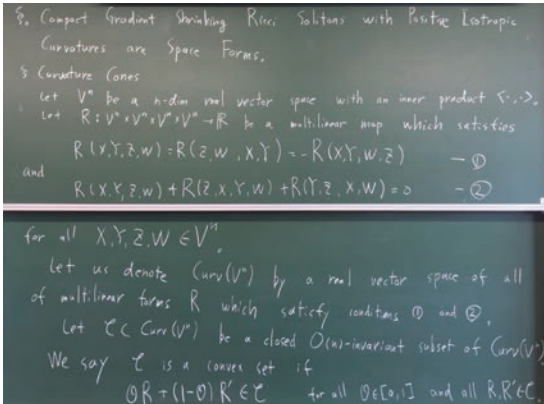 §. Compact Gradient Shrinking Ricci Solitons with Positive Isotropic
Curvatures are Space Forms.
§ Curvature Cones
Let Vⁿ be a n-dim real vector space with an inner product <·,·>.
Let R : Vⁿ×Vⁿ×Vⁿ×Vⁿ → ℝ be a multilinear map which satisfies
R(X,Y,Z,W) = R(Z,W,X,Y) = -R(X,Y,W,Z) — ①
and
R(X,Y,Z,W) + R(Z,X,Y,W) + R(Y,Z,X,W) = 0 — ②
for all X,Y,Z,W ∈ Vⁿ.
Let us denote Curv(Vⁿ) by a real vector space of all
of multilinear forms R which satisfy conditions ① and ②.
Let C ⊂ Curv(Vⁿ) be a closed O(n)-invariant subset of Curv(Vⁿ)
We say C is a convex set if
θR + (1-θ)R' ∈ C for all θ∈[0,1] and all R,R'∈C.